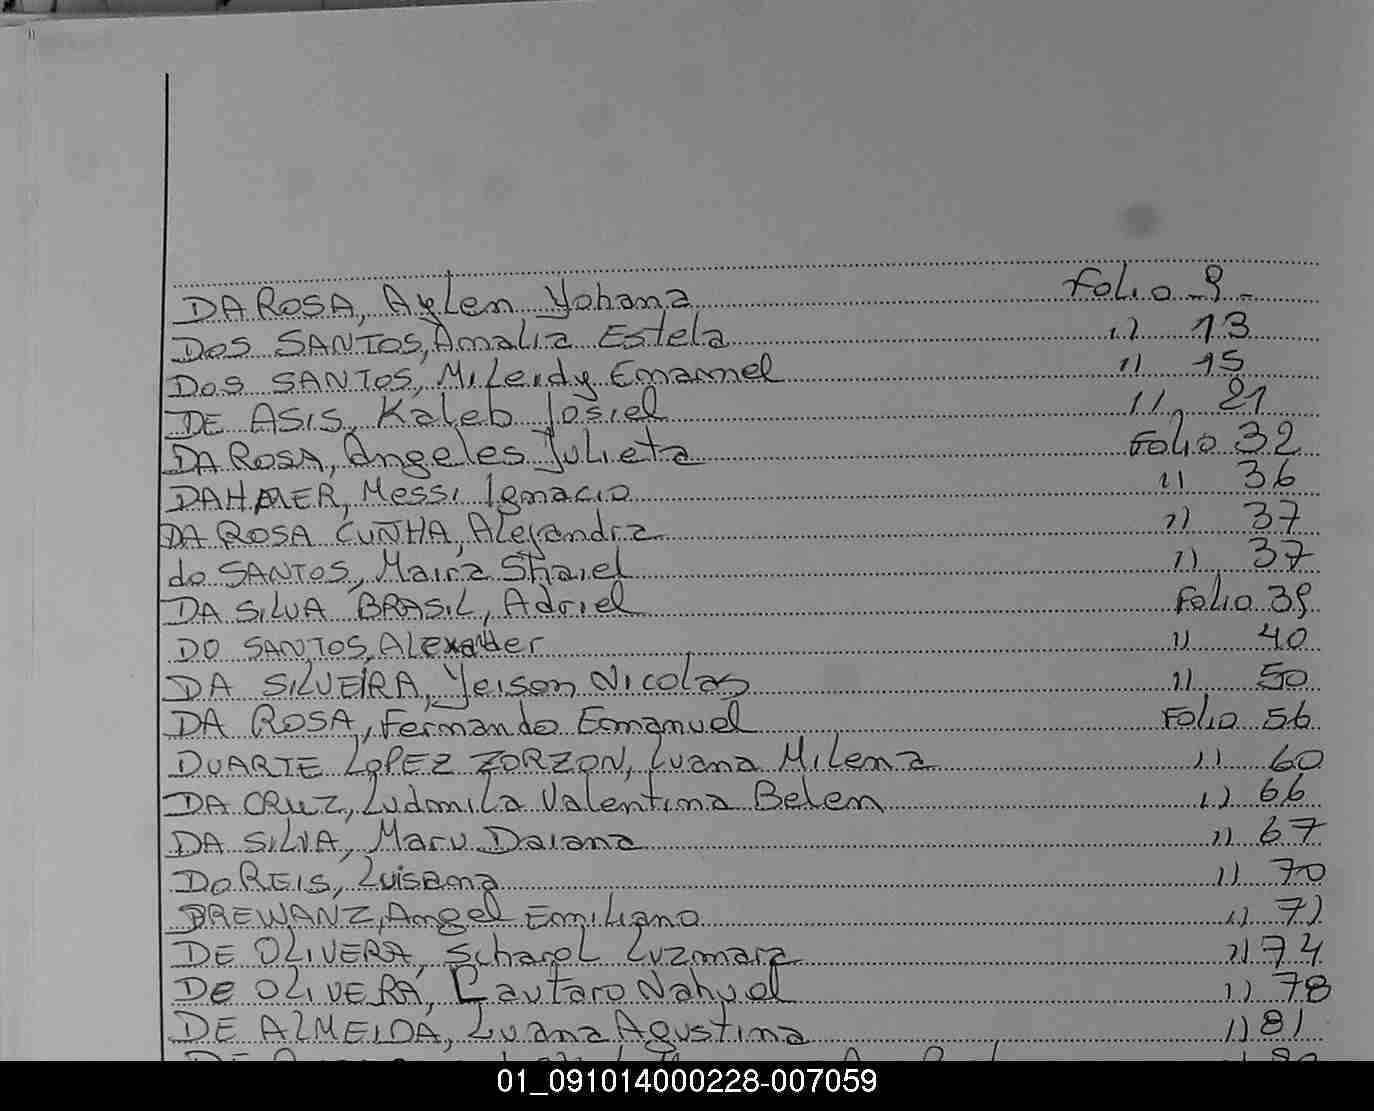 DA ROSA, Aylen Yohana Folio 9
DOS SANTOS, Amalia Estela " 13
DOS SANTOS, Mileidy Emanuel " 15
DE ASIS, Kaleb Josiel " 21
DA ROSA, Angeles Julieta Folio 32
DAHMER, Messi Ignacio " 36
DA ROSA CUNHA, Alejandra " 37
do SANTOS, Maira Shaiel " 37
DA SILVA BRASIL, Adriel Folio 39
DO SANTOS, Alexander " 40
DA SILVEIRA, Yeison Nicolas " 50
DA ROSA, Fernando Emanuel Folio 56
DUARTE LOPEZ ZORZON, Luana Milena " 60
DA CRUZ, Ludmila Valentina Belen " 66
DA SILVA, Maru Daiana " 67
Do REIS, Luisana " 70
BREWANZ, Angel Emiliano " 72
DE OLIVERA, Scharol Luzmara " 74
De OLIVERA, Lautaro Nahuel " 78
DE ALMEIDA, Luana Agustina " 81
01_091014000228-007059